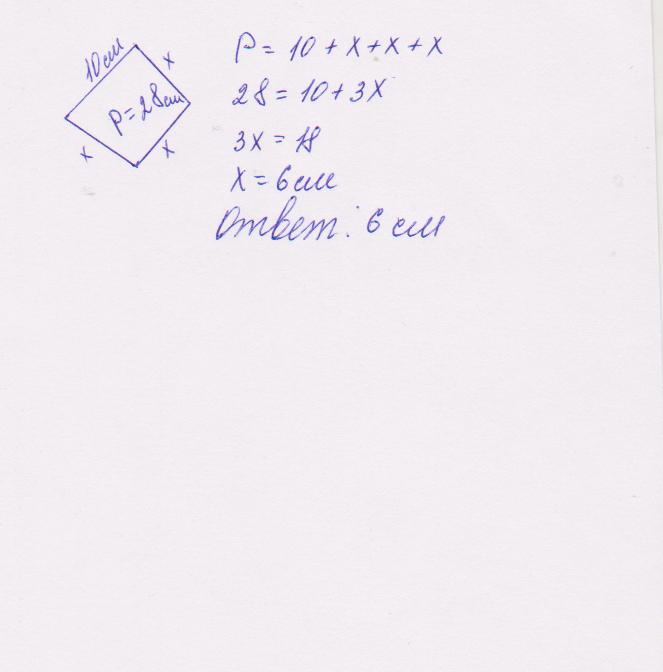 10см
x
P=28см
x
x
P = 10 + x + x + x
28 = 10 + 3x
3x = 18
x = 6 см
Ответ: 6 см